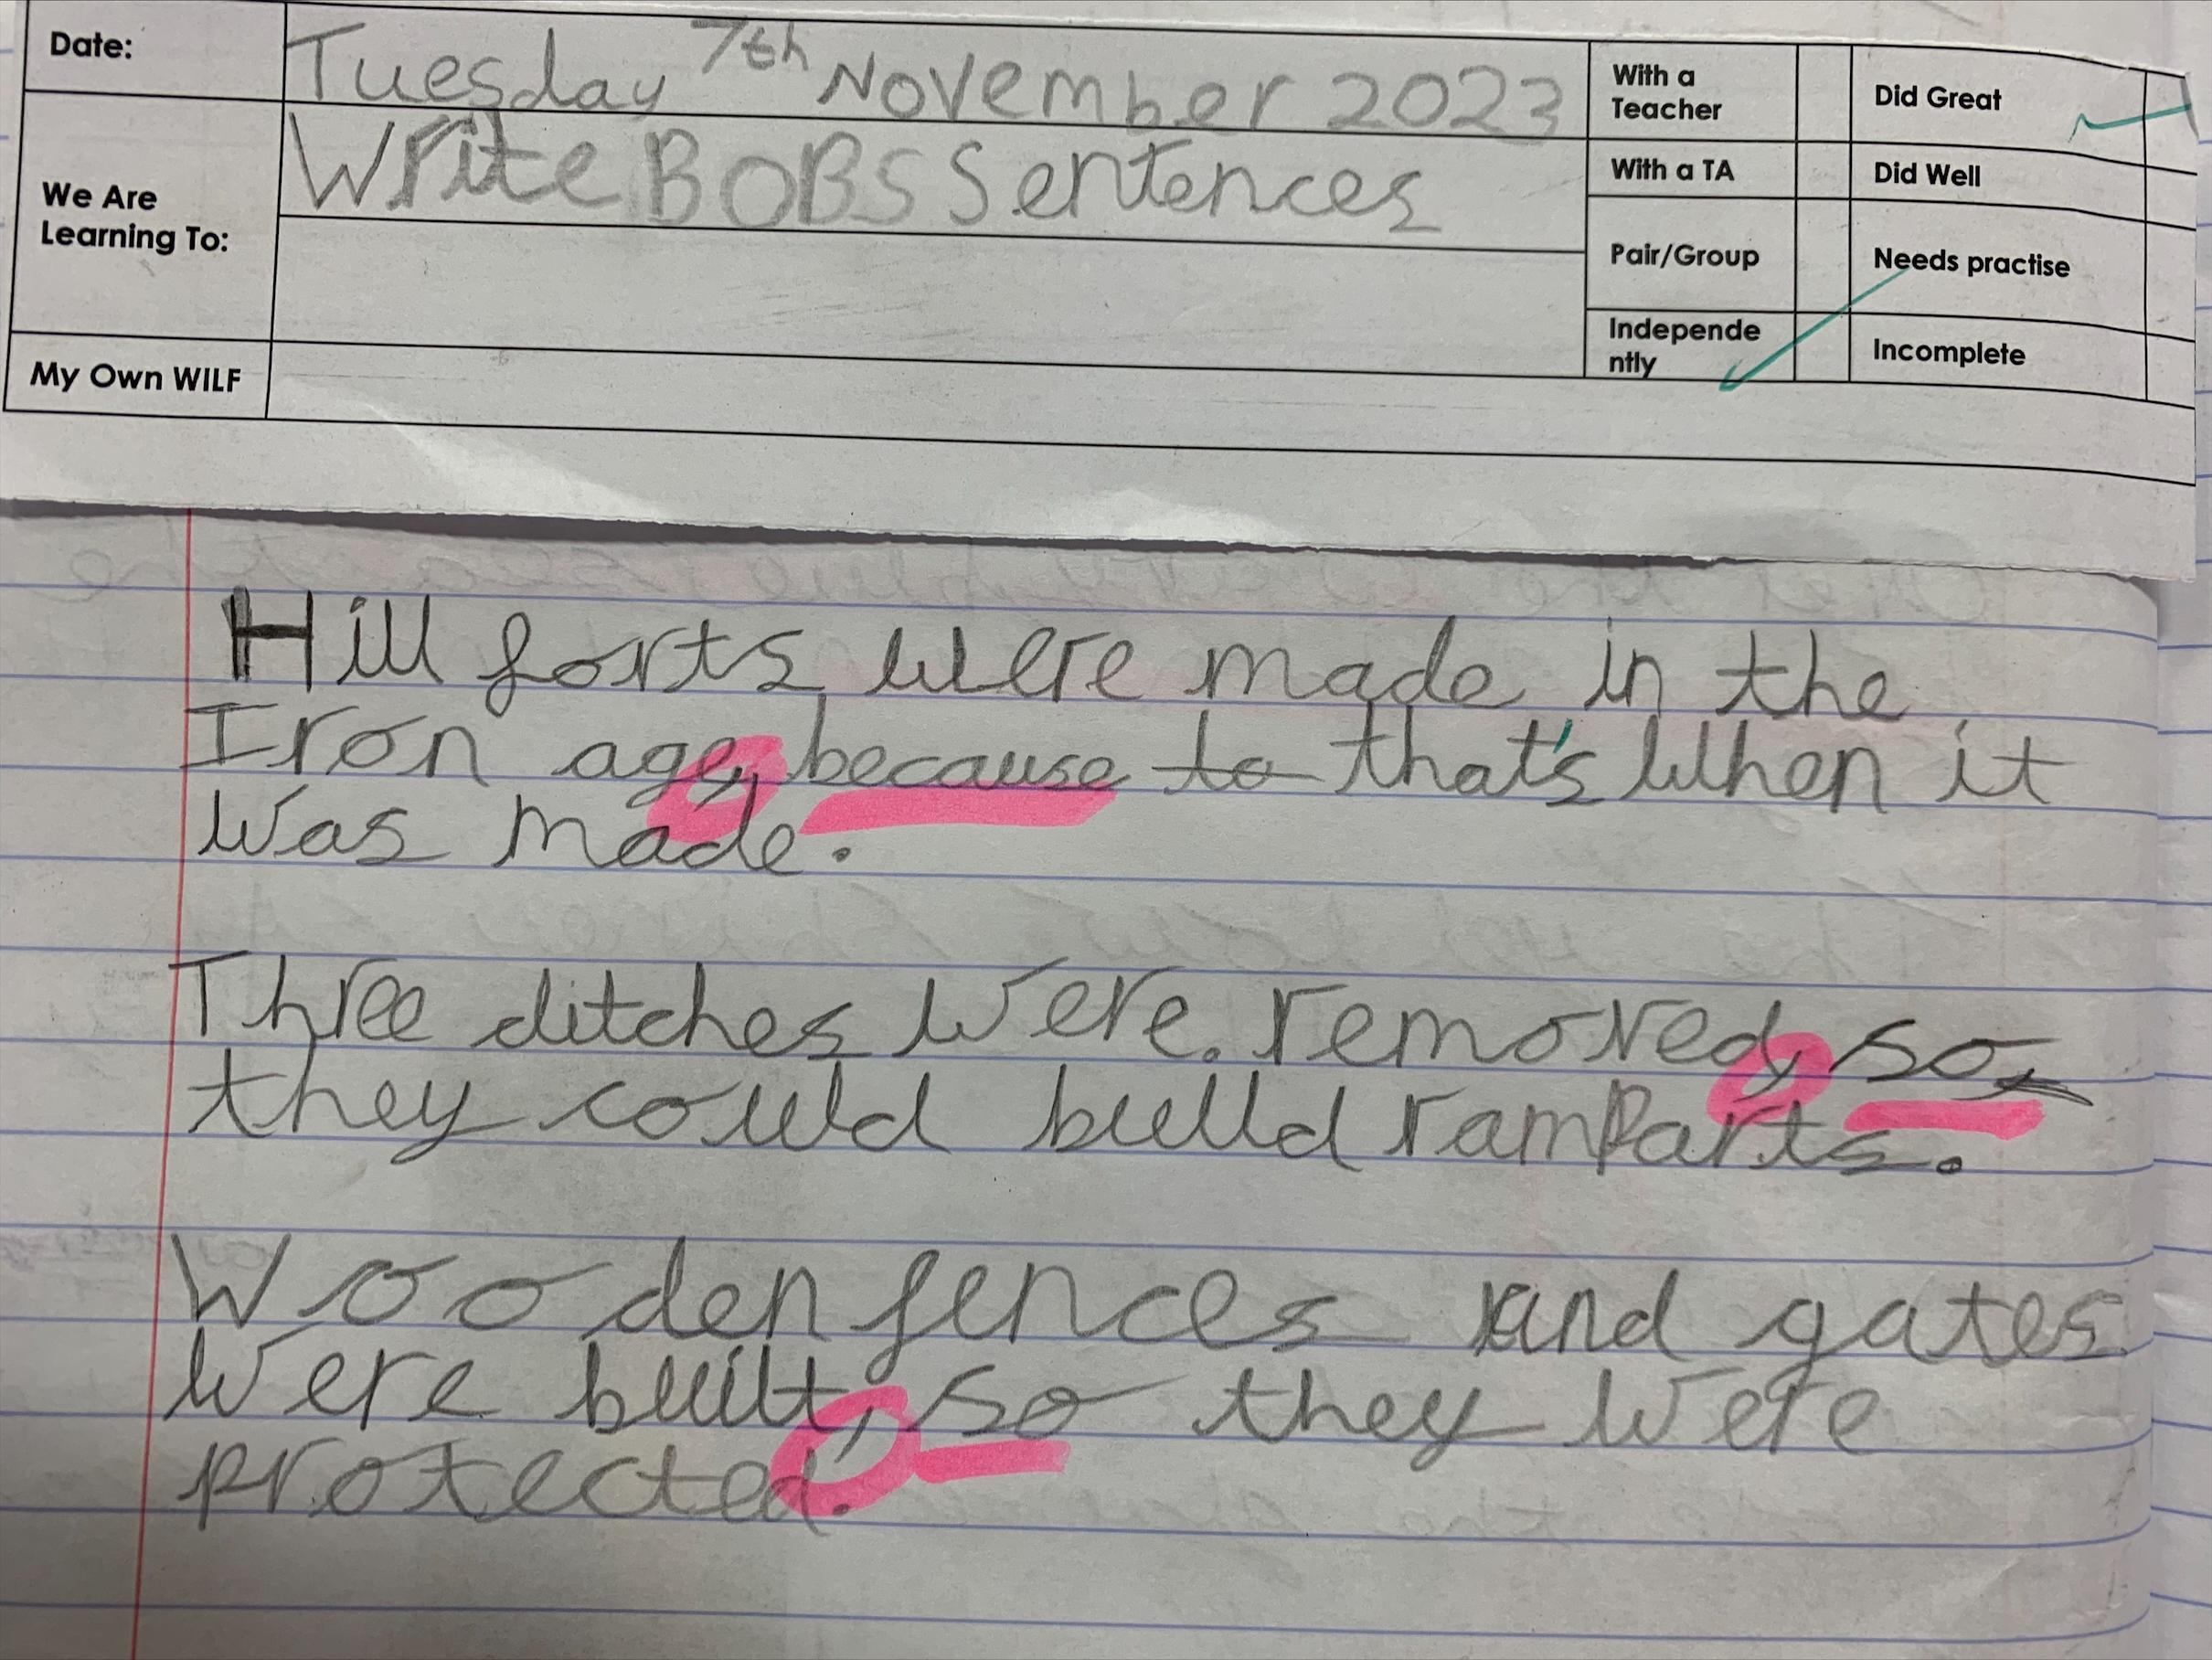 Date:
Tuesday 7th November 2023
We Are
Learning To:
Write BOBS Sentences
My Own WILF
With a
Teacher
Did Great
With a TA
Did Well
Pair/Group
Needs practise
Independe
ntly
Incomplete
Hill forts were made in the
Iron age, because to that's when it
was made.
Three ditches were. removed, so
they could build ramparts.
Wooden fences and gates
were built, so they were
protected.